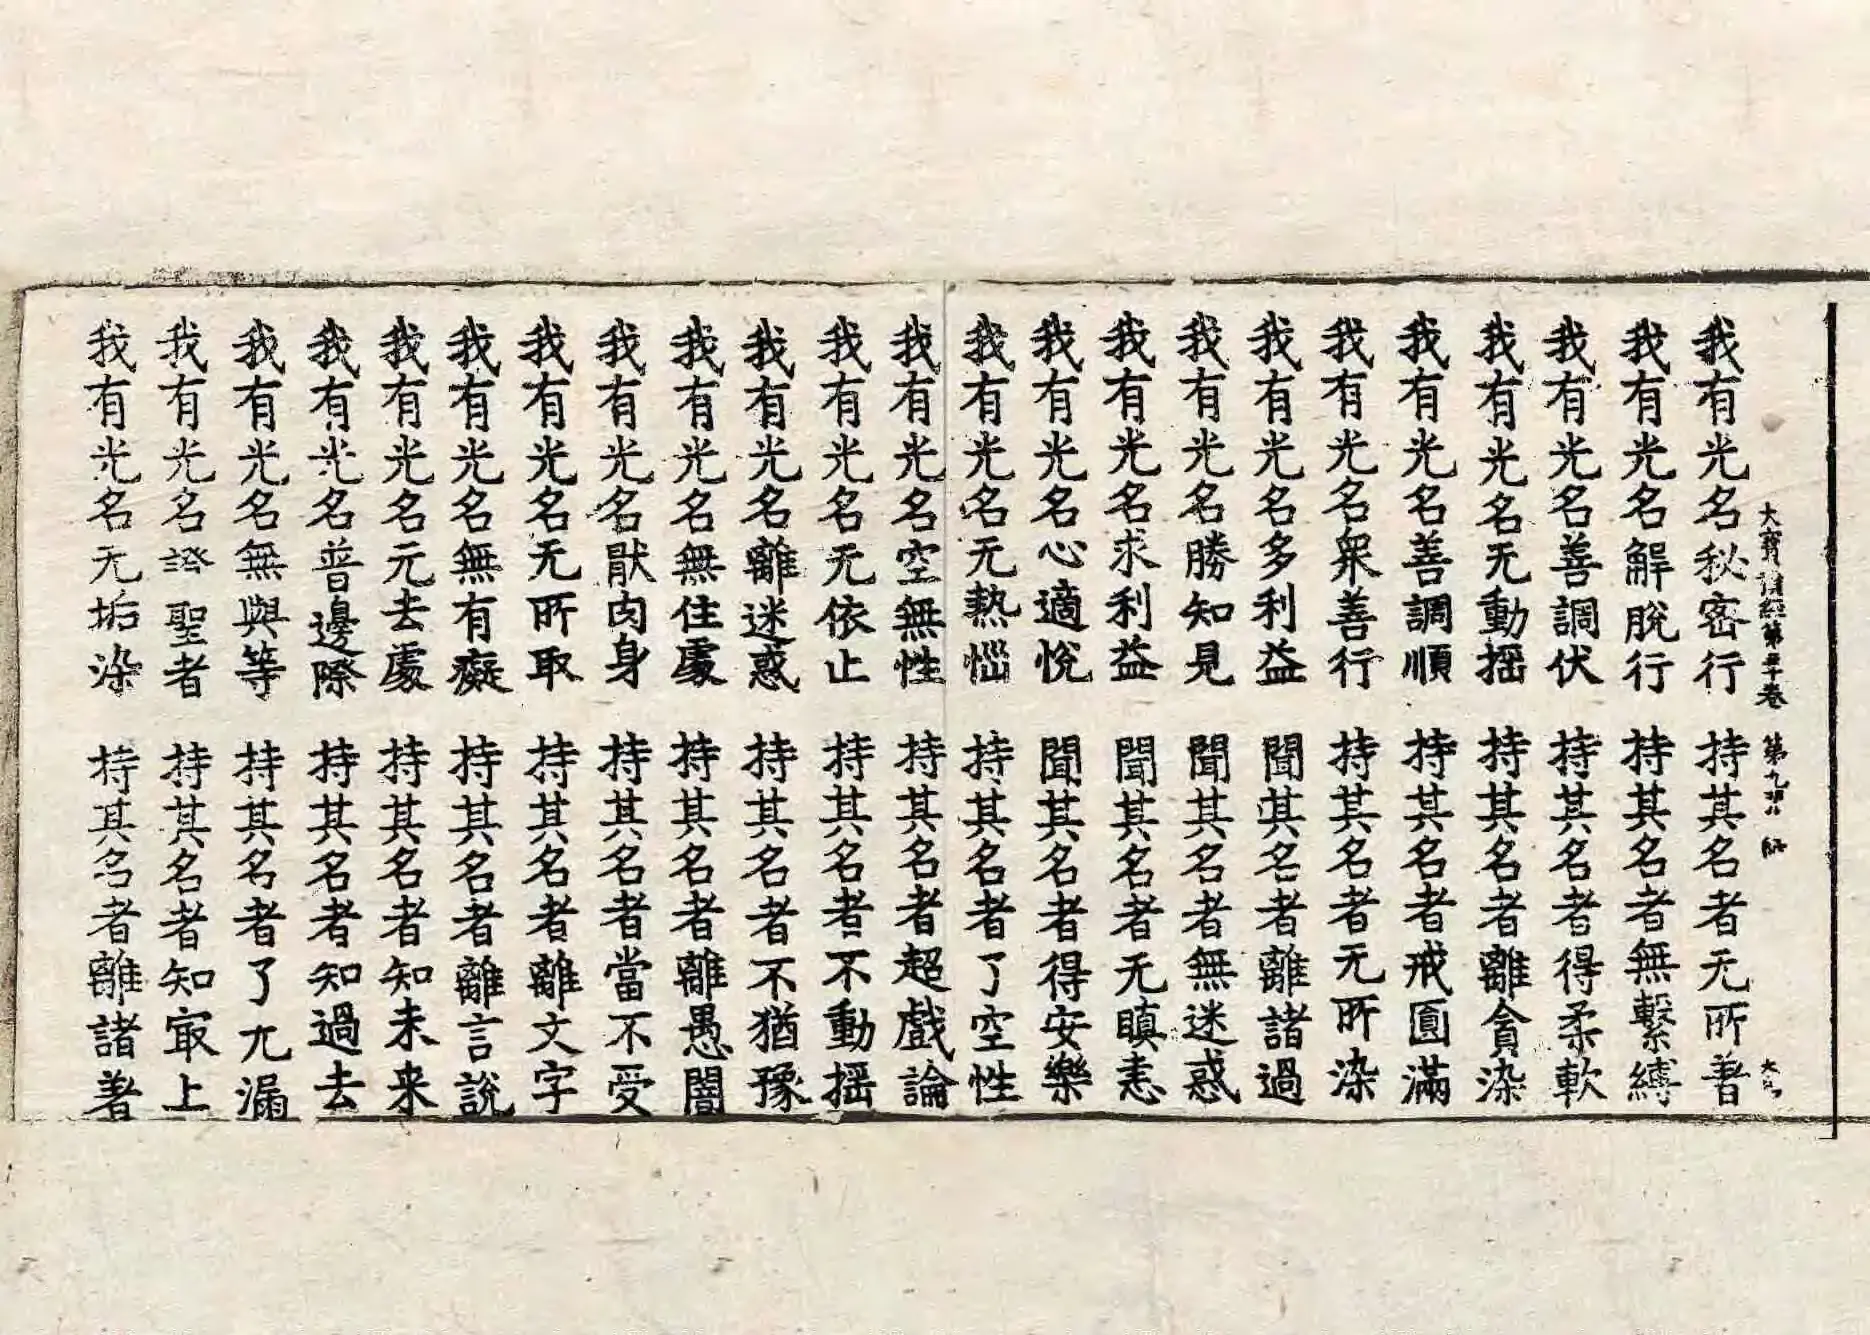 大寶積經第三十卷 第九張
我有光名秘密行 持其名者无所著
我有光名解脫行 持其名者無繫縛
我有光名善調伏 持其名者得柔軟
我有光名无動搖 持其名者離貪染
我有光名善調順 持其名者戒圓滿
我有光名衆善行 持其名者无所染
我有光名多利益 聞其名者離諸過
我有光名勝知見 聞其名者無迷惑
我有光名求利益 聞其名者无瞋恚
我有光名心適悅 聞其名者得安樂
我有光名无熱惱 持其名者了空性
我有光名空無性 持其名者超戲論
我有光名无依止 持其名者不動搖
我有光名離迷惑 持其名者不猶豫
我有光名無住處 持其名者離愚闇
我有光名猒肉身 持其名者當不受
我有光名无所取 持其名者離文字
我有光名無有癡 持其名者離言說
我有光名无去處 持其名者知未来
我有光名普邊際 持其名者知過去
我有光名無與等 持其名者了无漏
我有光名證聖者 持其名者知㝡上
我有光名无垢染 持其名者離諸著